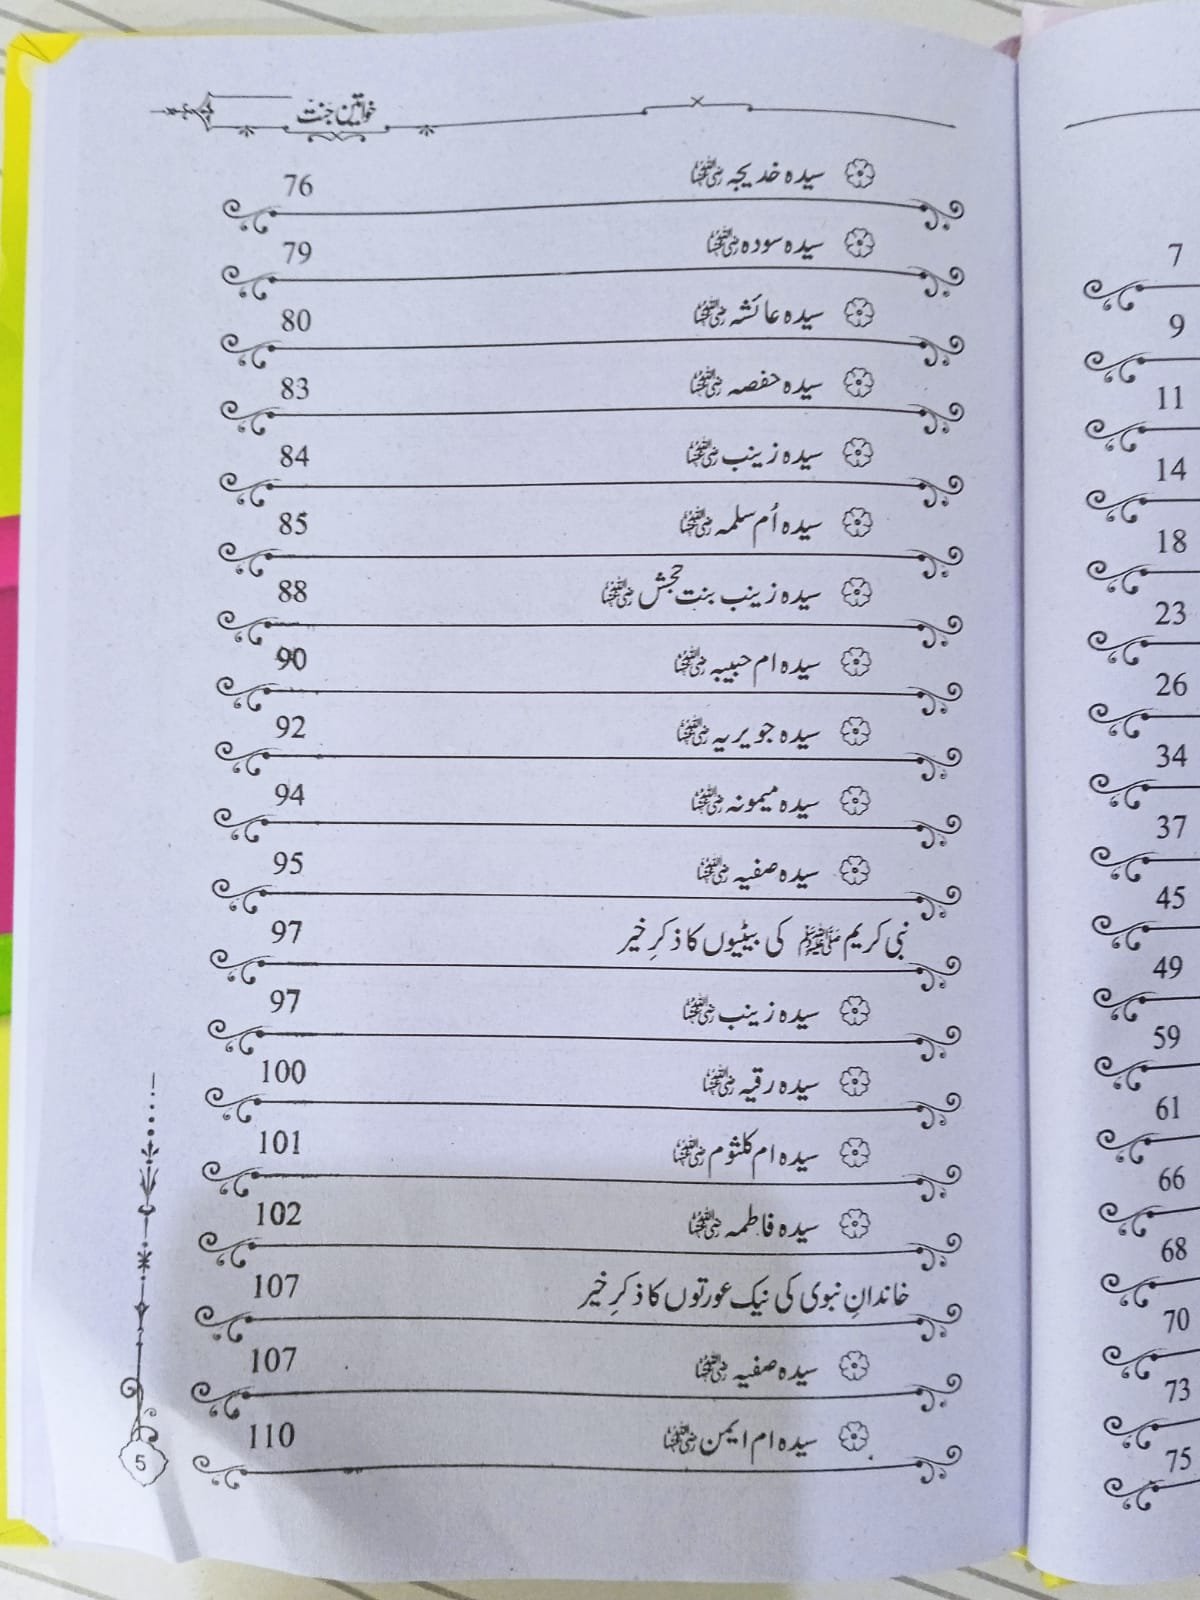 خواتین جنت
سیدہ خدیجہ رضی اللہ عنہا 76
سیدہ سودہ رضی اللہ عنہا 79
سیدہ عائشہ رضی اللہ عنہا 80
سیدہ حفصہ رضی اللہ عنہا 83
سیدہ زینب رضی اللہ عنہا 84
سیدہ اُم سلمہ رضی اللہ عنہا 85
سیدہ زینب بنت جحش رضی اللہ عنہا 88
سیدہ ام حبیبہ رضی اللہ عنہا 90
سیدہ جویریہ رضی اللہ عنہا 92
سیدہ میمونہ رضی اللہ عنہا 94
سیدہ صفیہ رضی اللہ عنہا 95
نبی کریم ﷺ کی بیٹیوں کا ذکرِ خیر 97
سیدہ زینب رضی اللہ عنہا 97
سیدہ رقیہ رضی اللہ عنہا 100
سیدہ ام کلثوم رضی اللہ عنہا 101
سیدہ فاطمہ رضی اللہ عنہا 102
خاندانِ نبوی کی نیک عورتوں کا ذکرِ خیر 107
سیدہ صفیہ رضی اللہ عنہا 107
سیدہ ام ایمن رضی اللہ عنہا 110
5
7
9
11
14
18
23
26
34
37
45
49
59
61
66
68
70
73
75